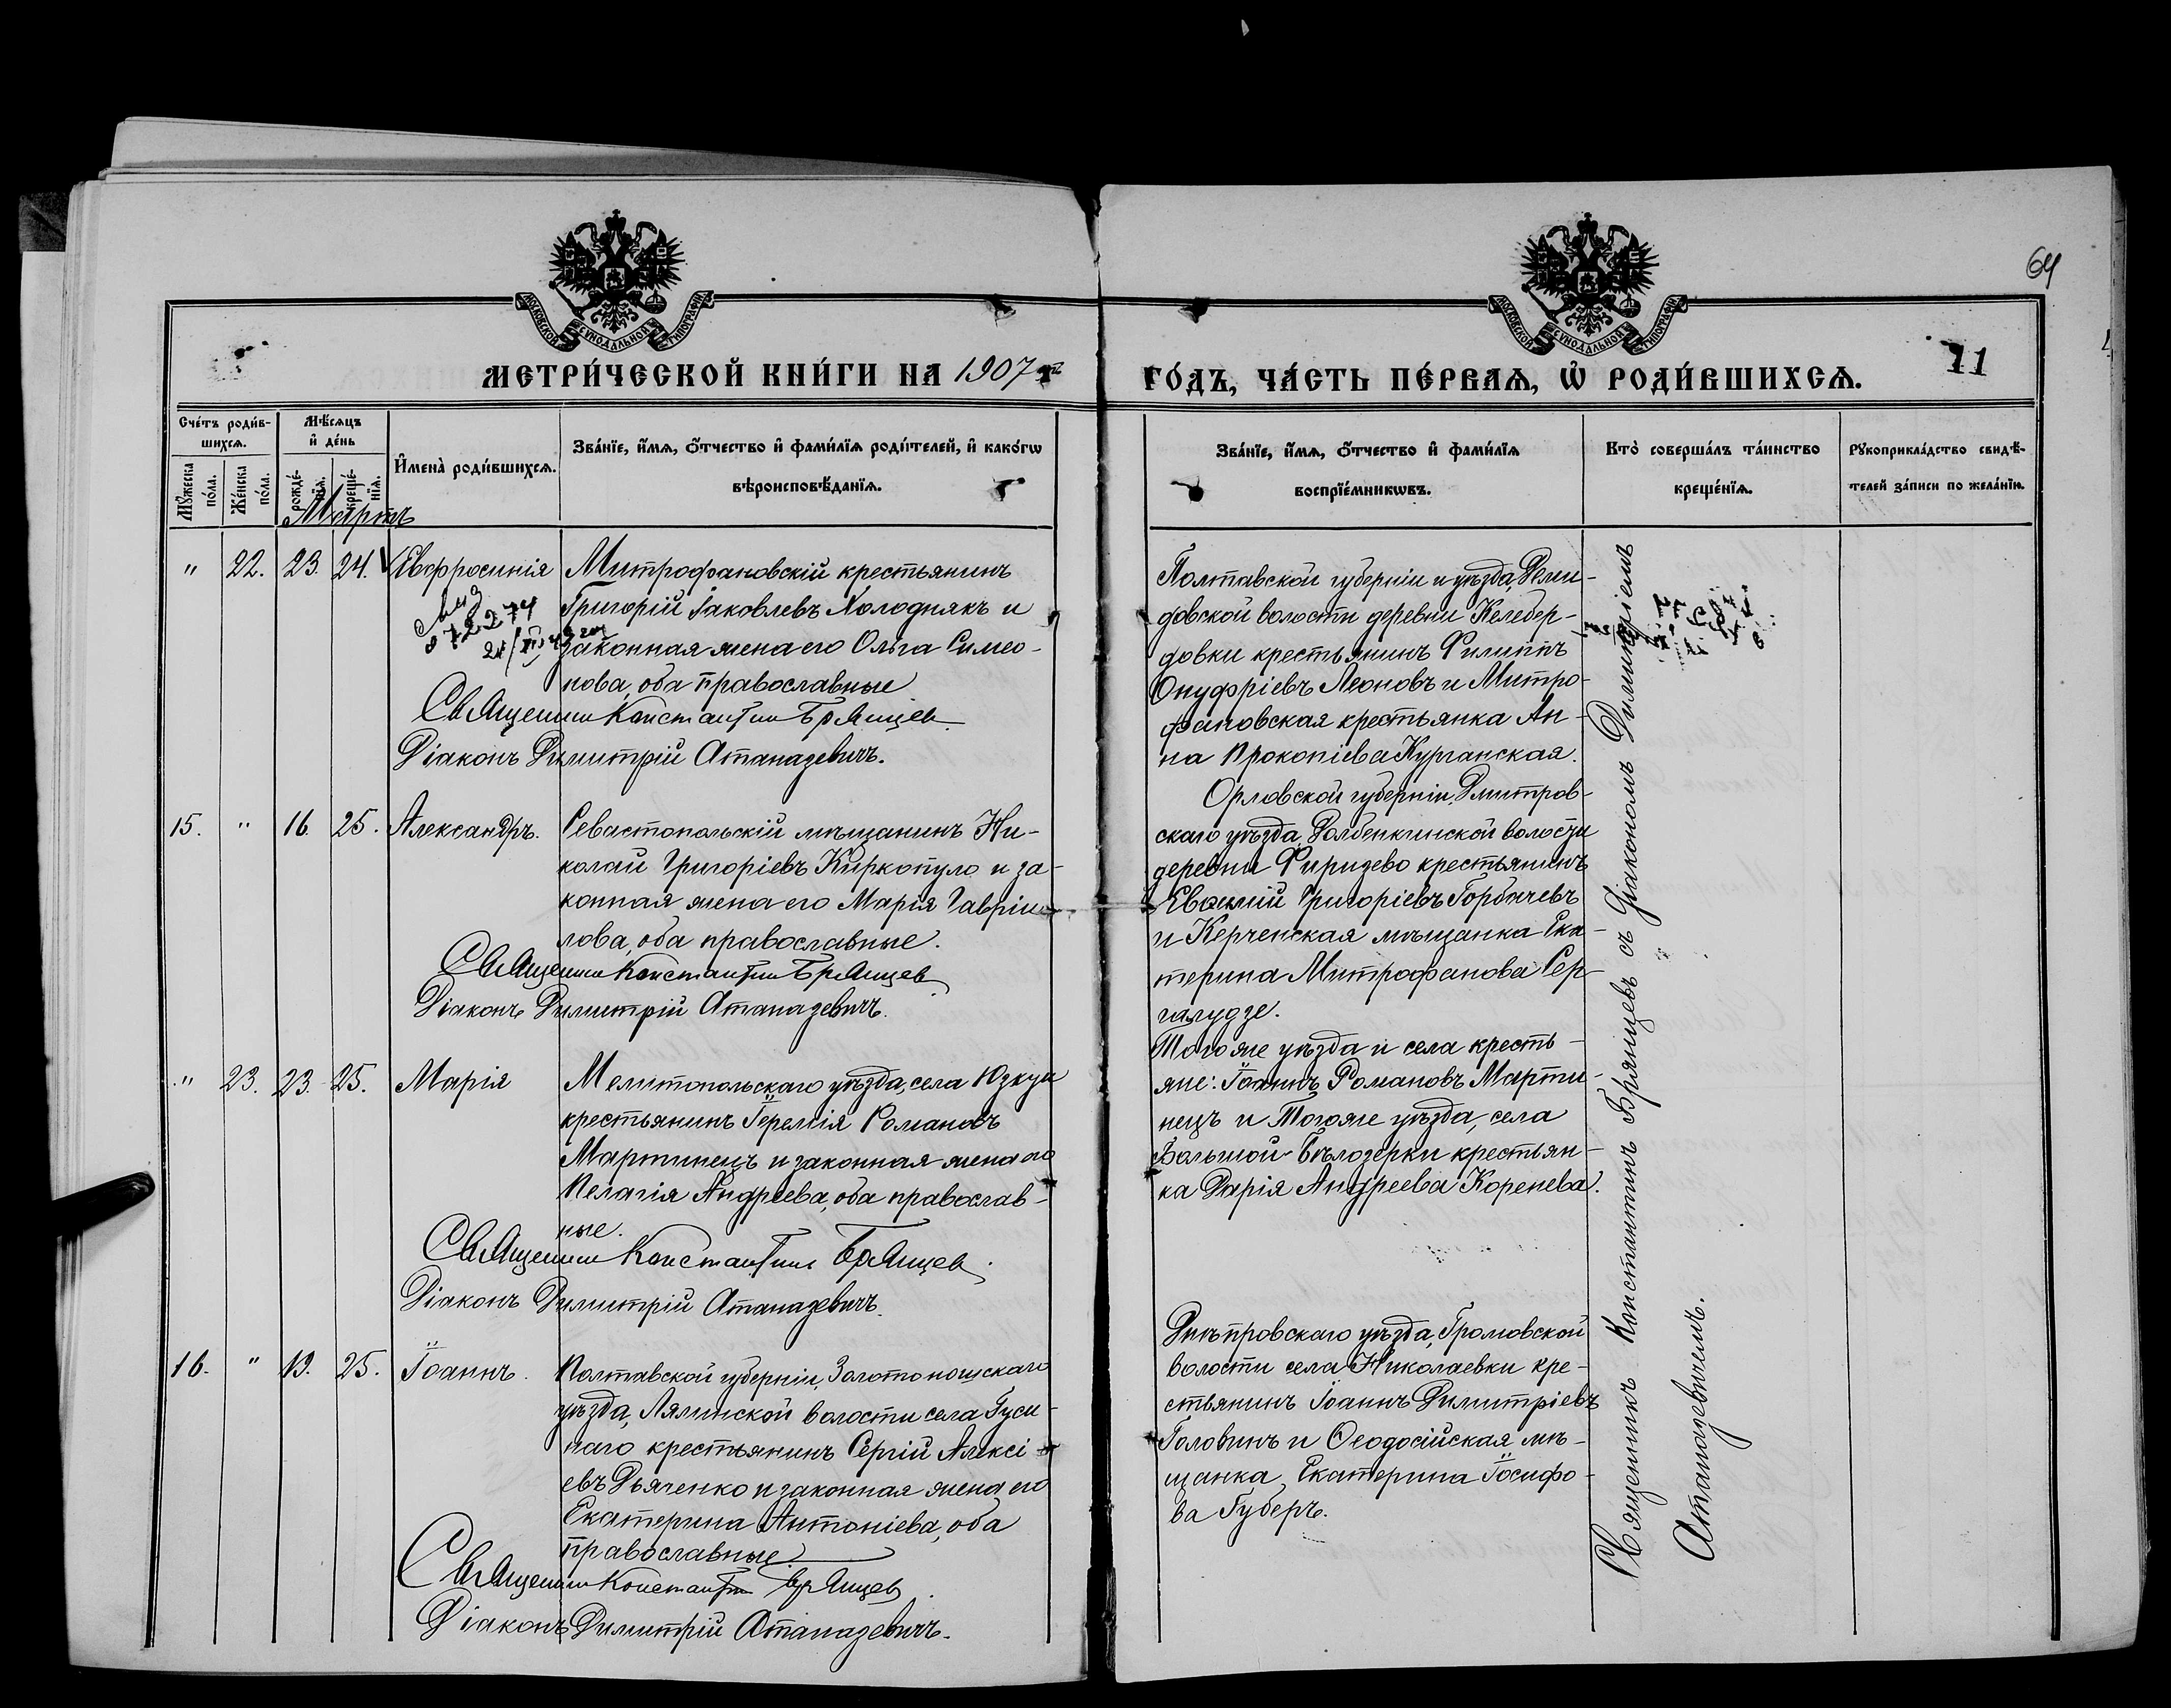 64
МОСКОВСКОЙ СѴНОДАЛЬНОЙ ТИПОГРАФІИ
МОСКОВСКОЙ СѴНОДАЛЬНОЙ ТИПОГРАФІИ
МЕТРИ́ЧЕСКОЙ КНИ́ГИ НА 1907 й
ГО́ДЪ, ЧА́СТЬ ПЕ́РВАѦ, Ѡ҆ РОДИ́ВШИХСѦ.
11
Сче́тъ роди́в-
шихсѧ.
Мѣ́сѧцъ
и҆ де́нь
Мꙋ́жеска
по́ла.
Же́нска
по́ла.
рожде́-
нїѧ.
креще́-
нїѧ.
И҆мена̀ роди́вшихсѧ.
Зва́нїе, и҆́мѧ, ѻ҆́тчество и҆ фами́лїѧ роди́телей, и҆ како́гѡ
вѣроисповѣ́данїѧ.
Зва́нїе, и҆́мѧ, ѻ҆́тчество и҆ фами́лїѧ
воспрїе́мникѡвъ.
Кто̀ соверша́лъ та́инство
креще́нїѧ.
Рꙋкоприкла́дство свидѣ́-
телей за́писи по жела́нїю.
Мартъ
" 22. 23. 24. Евфросинія
Митрофановскій крестьянинъ
Григорій Іаковлевъ Холоднякъ и
законная жена его Ольга Симео-
нова, оба православные
Священник Константин Брянцев
Діаконъ Димитрій Атаназевичъ.
Полтавской губерніи и уѣзда, Деми-
довской волости деревни Келебер-
довки крестьянинъ Филиппъ
Онуфріевъ Леоновъ и Митро-
фановская крестьянка Ан-
на Прокопіева Курганская.
15. " 16. 25. Александръ.
Севастопольскій мѣщанинъ Ни-
колай Григоріевъ Киркопуло и за-
конная жена его Марія Гавріи-
лова, оба православные.
Священник Константин Брянцев
Діаконъ Димитрій Атаназевичъ.
Орловской губерніи, Дмитров-
скаго уѣзда, Долбенкинской волости
деревни Фиризево крестьянинъ
Григоріевъ Горбачевъ
и Керченская мѣщанка Ека-
терина Митрофанова Сер-
галудзе.
" 23. 23. 25. Марія
Мелитопольскаго уѣзда, села Юзкуи
крестьянинъ Іеремія Романовъ
Мартинецъ и законная жена его
Пелагія Андреева, оба православ-
ные.
Священник Константин Брянцев.
Діаконъ Димитрій Атаназевичъ.
Того же уѣзда и села кресть-
яне: Іоаннъ Романовъ Марти-
нецъ и Того же уѣзда, села
Большой-Бѣлозерки крестьян-
ка Дарія Андреева Коренева.
16. " 19. 25. Іоаннъ.
Полтавской губерніи, Золотоношскаго
уѣзда, Лялинской волости села Гуси-
наго крестьянинъ Сергій Алексі-
евъ Дьяченко и законная жена его
Екатерина Антоніева, оба
православные.
Священник Константин Брянцев.
Діаконъ Димитрій Атаназевичъ.
Днѣпровскаго уѣзда, Громовской
волости села Николаевки кре-
стьянинъ Іоаннъ Димитріевъ
Головинъ и Ѳеодосійская мѣ-
щанка, Екатерина Іосифо-
ва Губеръ.
Священникъ Константинъ Брянцевъ съ діакономъ Димитріемъ
Атаназевичемъ.